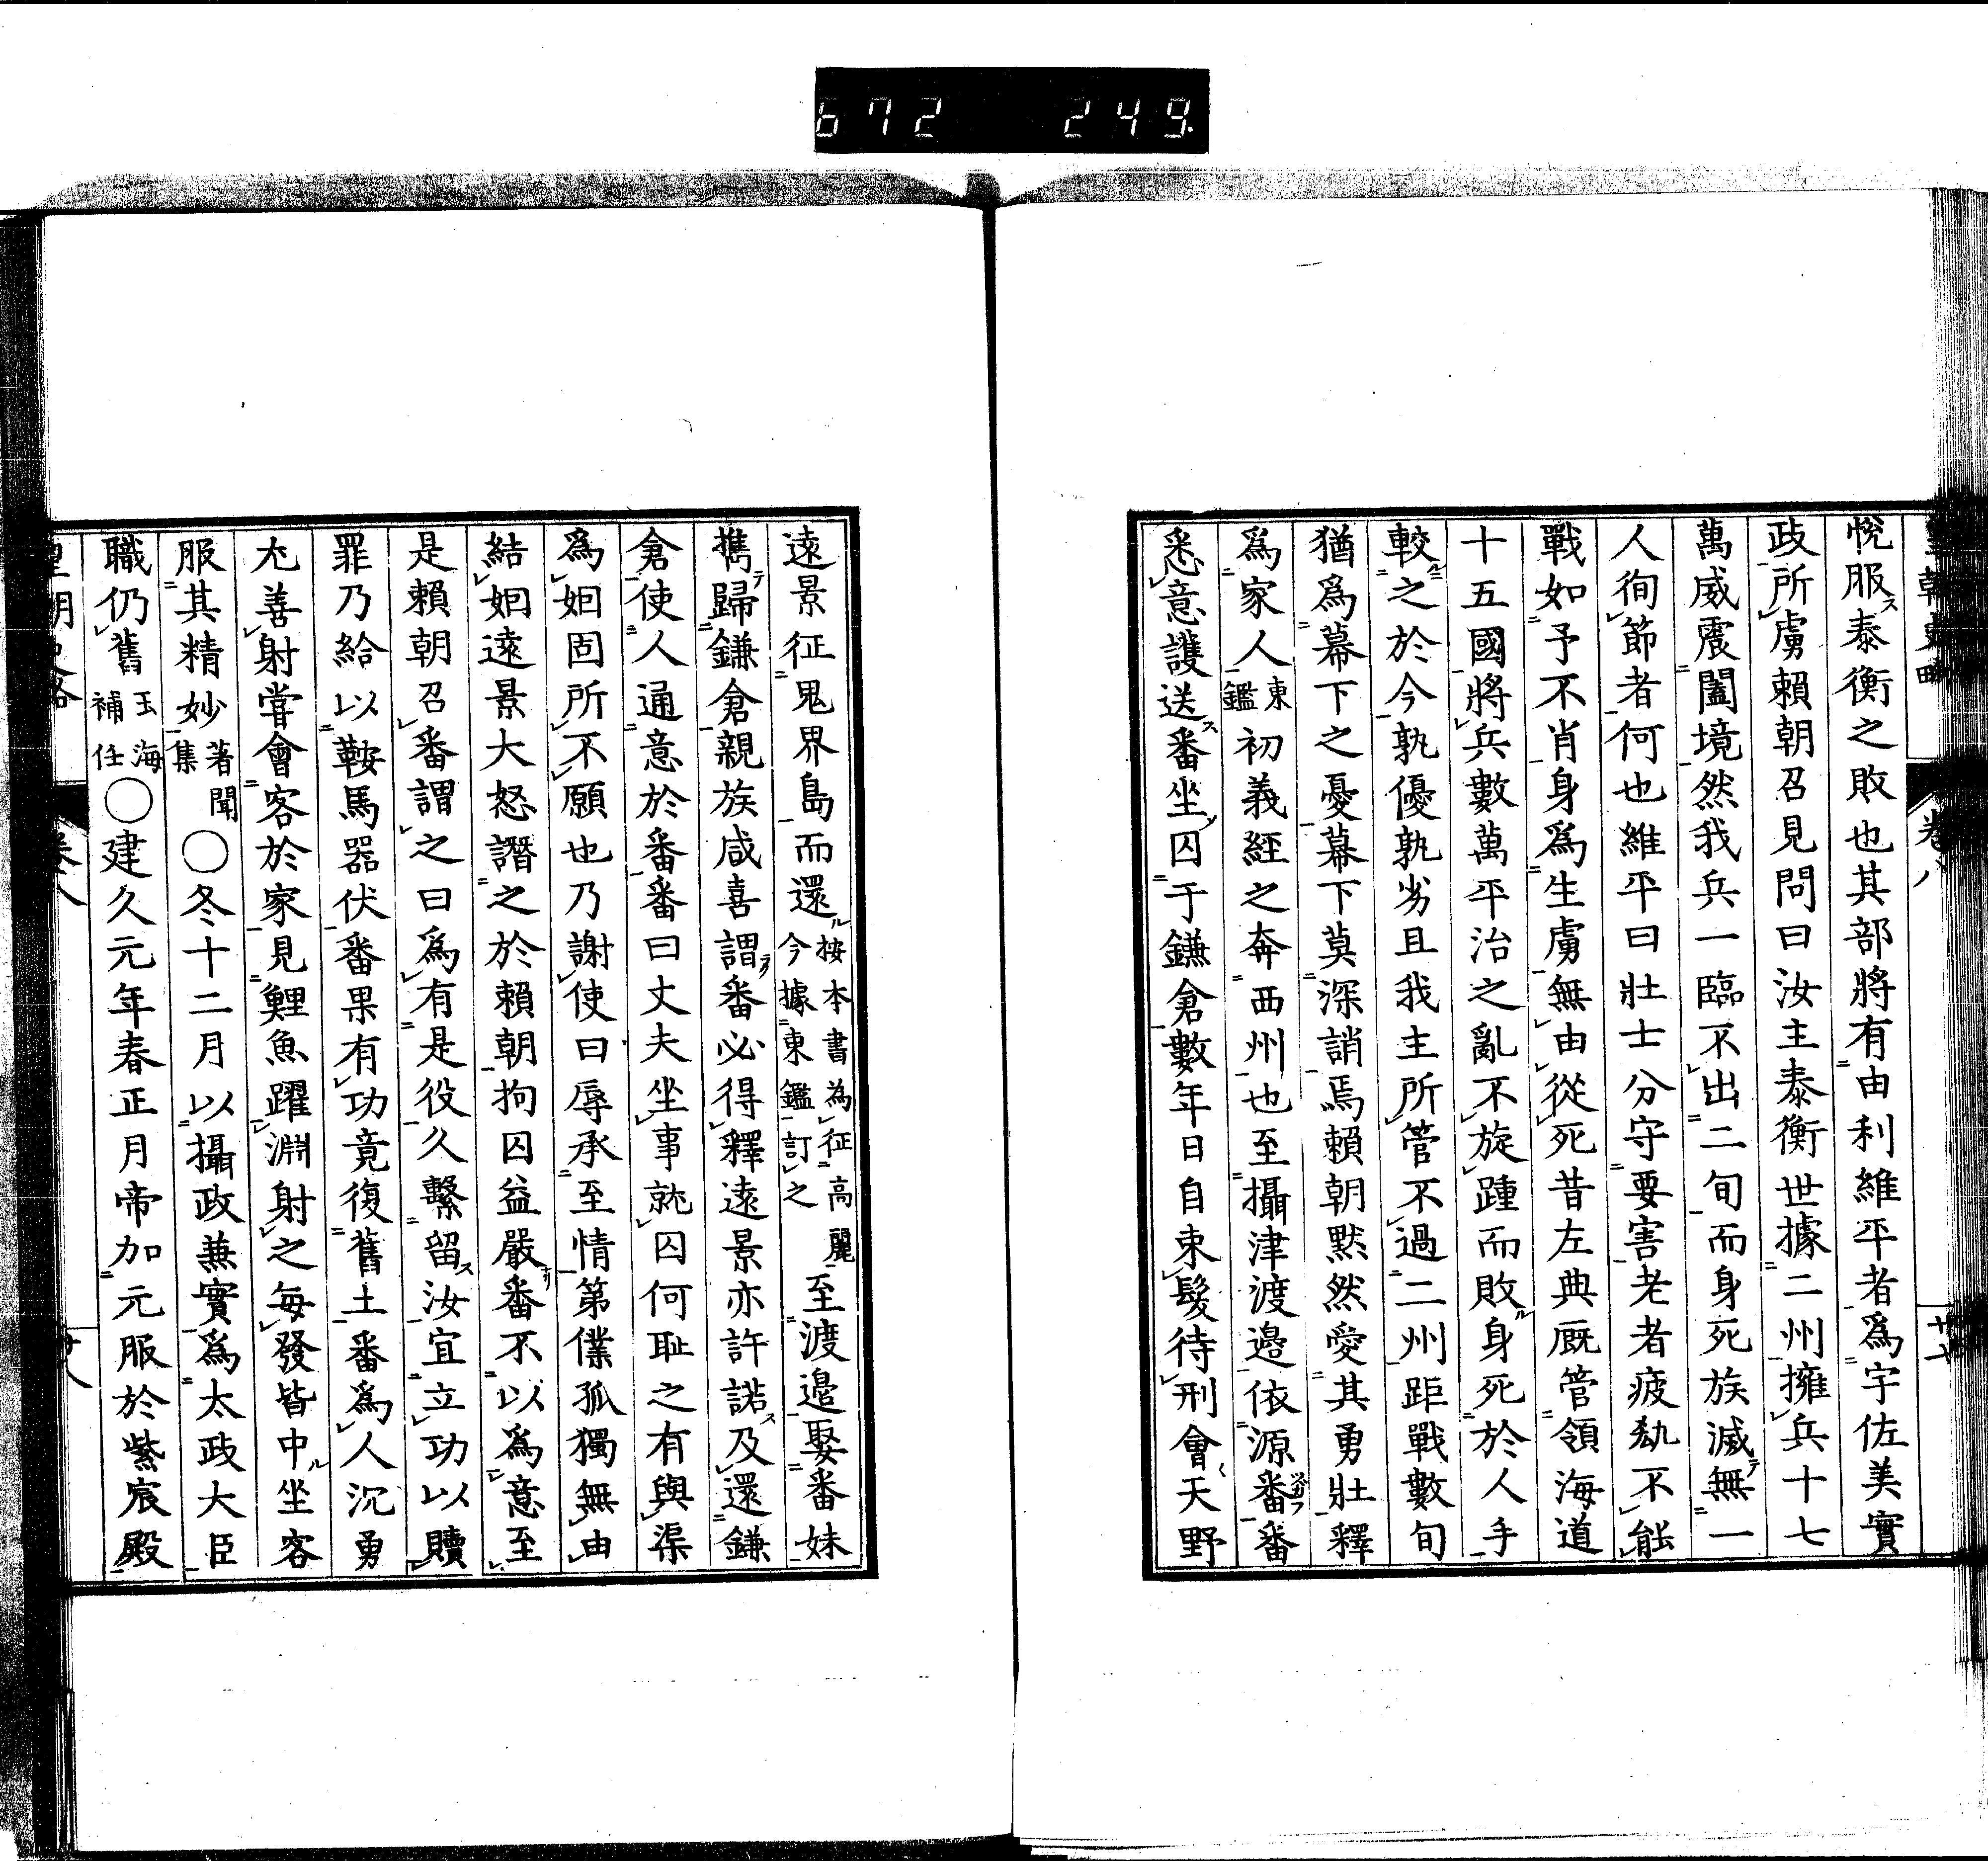 672 249
悅服泰衡之敗也其部將有由利維平者爲宇佐美實
政所虜賴朝召見問曰汝主泰衡世據二州擁兵十七
萬威震闔境然我兵一臨不出二旬而身死族滅無一
人徇節者何也維平曰壯士分守要害老者疲劮不能
戰如予不肖身爲生虜無由從死昔左典厩管領海道
十五國將兵數萬平治之亂不旋踵而敗身死於人手
較之於今孰優孰劣且我主所管不過二州距戰數旬
猶爲幕下之憂幕下莫深誚焉賴朝默然愛其勇壯釋
爲家人東鑑初義經之奔西州也至攝津渡邉依源番番
悉意護送番坐囚于鎌倉數年日自束髮待刑會天野
遠景征鬼界島而還按本書為征高麗今據東鑑訂之至渡邉娶番妹
携歸鎌倉親族咸喜謂番必得釋遠景亦許諾及還鎌
倉使人通意於番番曰丈夫坐事就囚何耻之有與渠
爲姻固所不願也乃謝使曰辱承至情第僕孤獨無由
結姻遠景大怒譖之於賴朝拘囚益嚴番不以爲意至
是賴朝召番謂之曰爲有是役久繫留汝宜立功以贖
罪乃給以鞍馬器伏番果有功竟復舊土番爲人沉勇
尤善射嘗會客於家見鯉魚躍淵射之每發皆中坐客
服其精妙著聞集〇冬十二月以攝政兼實爲太政大臣
職仍舊玉海補任〇建久元年春正月帝加元服於紫宸殿